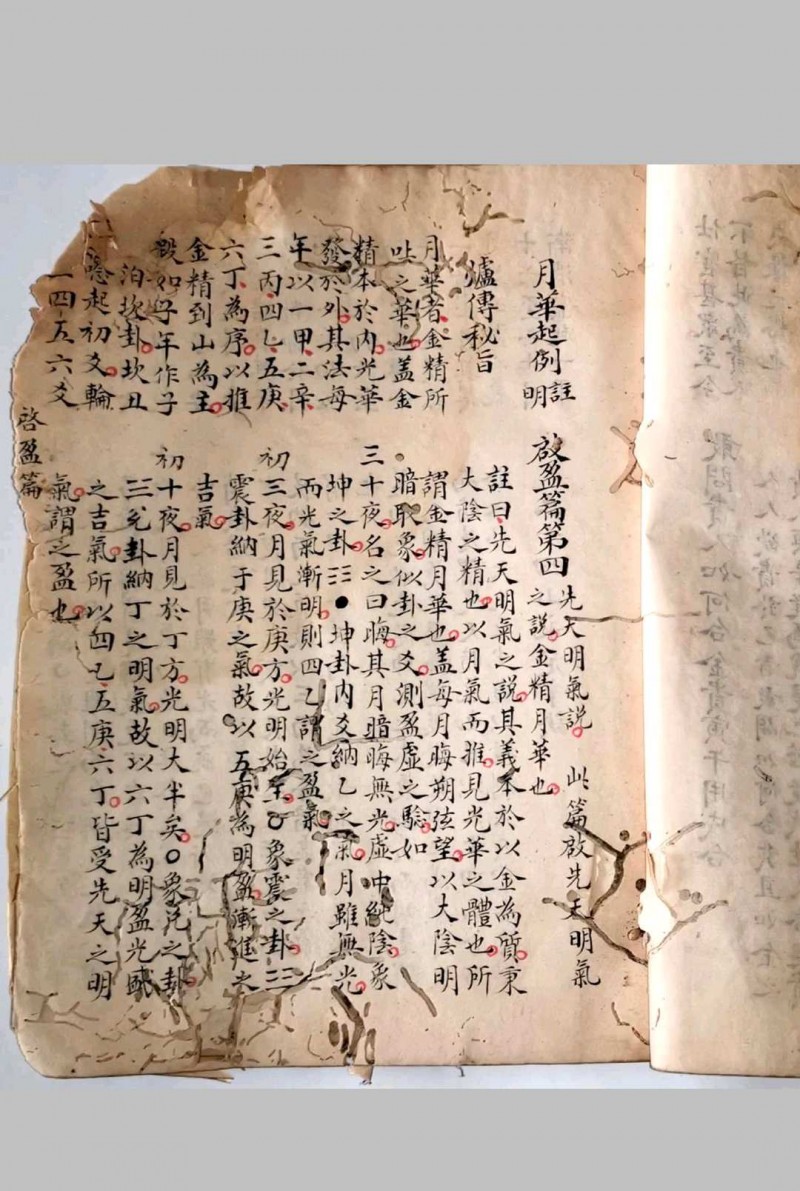 月華起例 註明
瀘傳秘旨
月華者金精所
吐之華也蓋金
精本於內光華
發於外其法每
年以一甲二辛
三丙四乙五庚
六丁為序以推
金精到山為主
假如子年作子
泊坎卦坎丑
起初爻輪
一四五六爻
啓盈篇
啟盈篇第四 先天明氣說 此篇啟先天明氣
之說金精月華也
註曰先天明氣之說其義本於以金為質秉
大陰之精也以月氣而推見光華之體也所
謂金精月華也蓋每月晦朔弦望以大陰明
暗取象似卦之爻測盈虛之驗如
三十夜名之曰晦其月暗晦無光虛中純陰象
坤之卦☷●坤卦內爻納乙之氣月雖無光
而光氣漸明則四乙謂之盈氣
初三夜月見於庚方光明始至 象震之卦☳
震卦納于庚之氣故以五庚為明盈漸進之
吉氣
初十夜月見於丁方光明大半矣 象兌之卦
☱兌卦納丁之明氣故以六丁為明盈光
之吉氣所以四乙五庚六丁皆受先天之明
氣謂之盈也